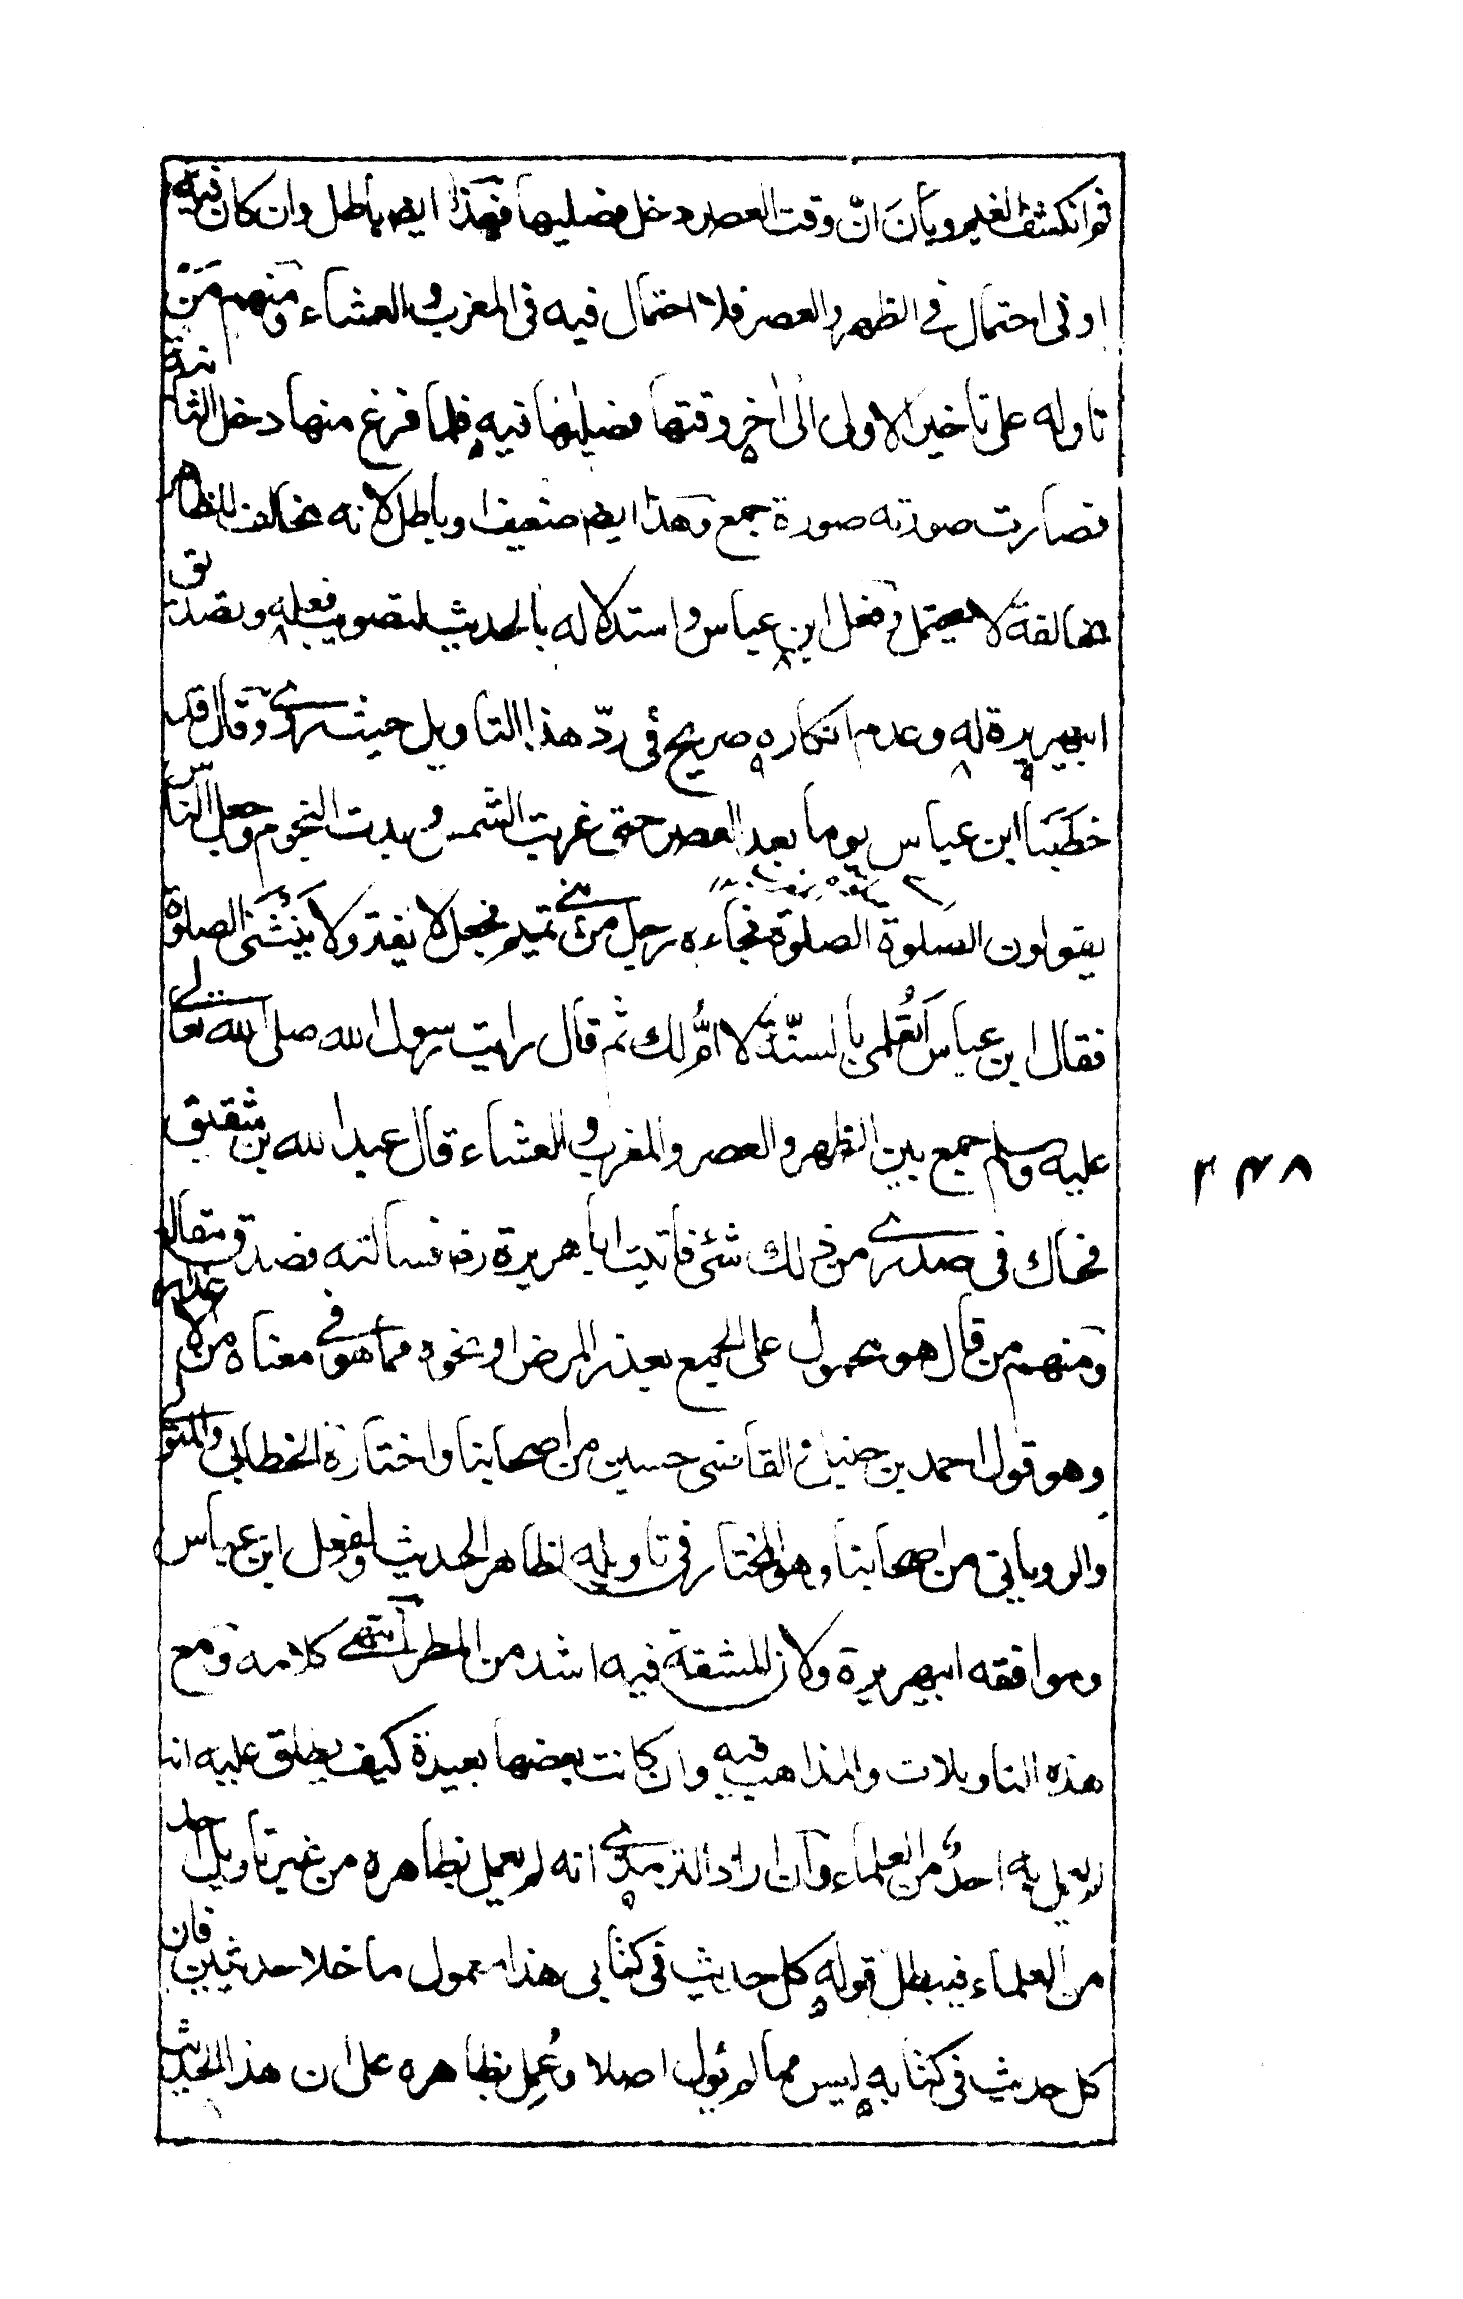 ثم انكشف الغيم وبان انّ وقت العصر دخل فصليها فهذا ايضم باطل وان كان فيه
او في احتمال في الظهر والعصر فلا احتمال فيه في المغرب والعشاء ومنهم مَنْ
تاوله على تاخير الاولى الى اٰخر وقتها فصليٰها فيه فلما فرغ منها دخل الثانية
فصارت صورته صورة جمع وهذا ايضم ضعيف او باطل لانه مخالف للظاهر
مخالفة لا تحتمل وفعل ابن عباس واستدلاله بالحديث لتصويب فعله وتصديق
ابيهريرة له وعدم انكاره صريح في ردّ هذا التاويل حيث روى وقال قد
خطَبَنا ابن عباس يوما بعد العصر حتى غربت الشمس وبدت النجوم وجعل الناس
يقولون الصلوة الصلوة فجاءه رجل من بني تميم فجعل لا يفتر ولا ينثني الصلوة
فقال ابن عباس اَتُعلمني بالسنّة لا امَّ لك ثم قال رايت رسول الله صلى الله تعالى
عليه وسلم جمع بين الظهر والعصر والمغرب والعشاء قال عبد الله بن شقيق
فحاك في صدري من ذلك شئ فاتيت ابا هريرة رض فسالته فصدق مقالته
ومنهم من قال هو محمول على الجمع بعذر المرض او نحوه مما هو في معناه من الاعذار
وهو قول احمد بن حنبل والقاضى حسين من اصحابنا واختاره الخطابي والمتولي
والروياني من اصحابنا وهو المختار في تاويله لظاهر الحديث ولفعل ابن عباس
وموافقه ابيهريرة ولان المشقة فيه اشد من المطر انتهى كلامه ومع
هذه التاويلات والمذاهب فيه وان كانت بعضها بعيدة كيف يطلق عليه انه
لم يعمل به احدٌ من العلماء وان اراد الترمذي انه لم يعمل بظاهره من غير تاويل احد
من العلماء فيبطل قوله كل حديث في كتابي هذا معمول ما خلا حديثين فان
كل حديث في كتابه ليس مما لم يؤول اصلا وعُمِل بظاهره على ان هذا الحديث
٣٤٨